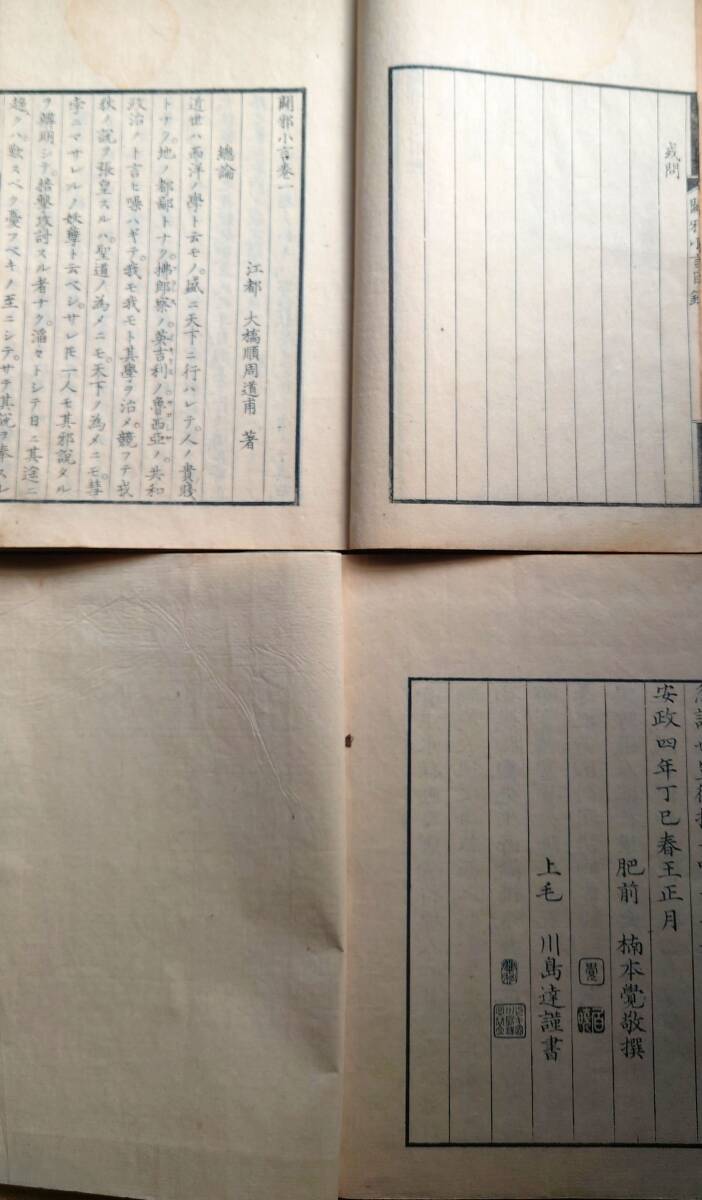 或問
闢邪小言目錄
闢邪小言卷一
江都 大橋順周道甫 著
總論
近世ハ西洋ノ學ト云モノ。盛ニ天下ニ行ハレテ。人ノ貴賤
トナク。地ノ都鄙トナク。拂郎察ノ英吉利ノ魯西亞ノ共和
政治ノト言ヒ噪ハギテ。我モ我モト其學ヲ治メ。競フテ戎
狄ノ說ヲ張皇スルハ。聖道ノ為メニモ。天下ノ為メニモ。彗
孛ニマサレルノ妖孽ト云ベシ。サレ𪜈一人モ其邪說タル
ヲ辯明シテ。掊擊攻討スル者ナク。滔々トシテ日ニ其途ニ
趨クハ。歎スベク憂フベキノ至ニシテ。サテ其說ヲ奉スル
安政四年丁巳春王正月
肥前 楠本覺敬撰
上毛 川島達謹書